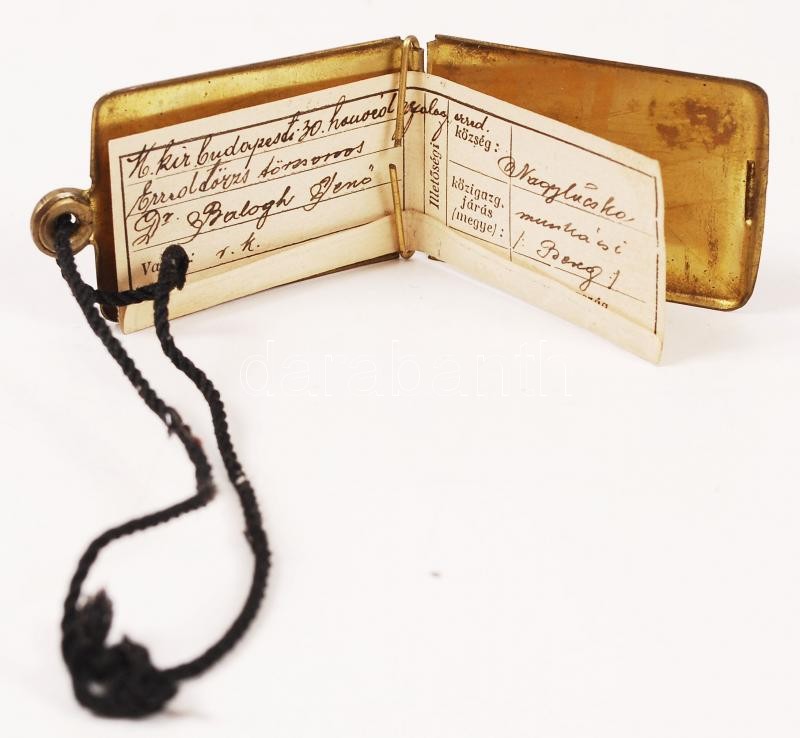 M. kir. budapesti 30. honvéd gyalog ezred.
Ezredtörzs törzsorvos
Dr. Balogh Jenő
Va :
r. k.
Illetőségi
község :
Nagylucska
közigazg.
járás
(megye) :
munkácsi
/: Bereg :/
darabanth